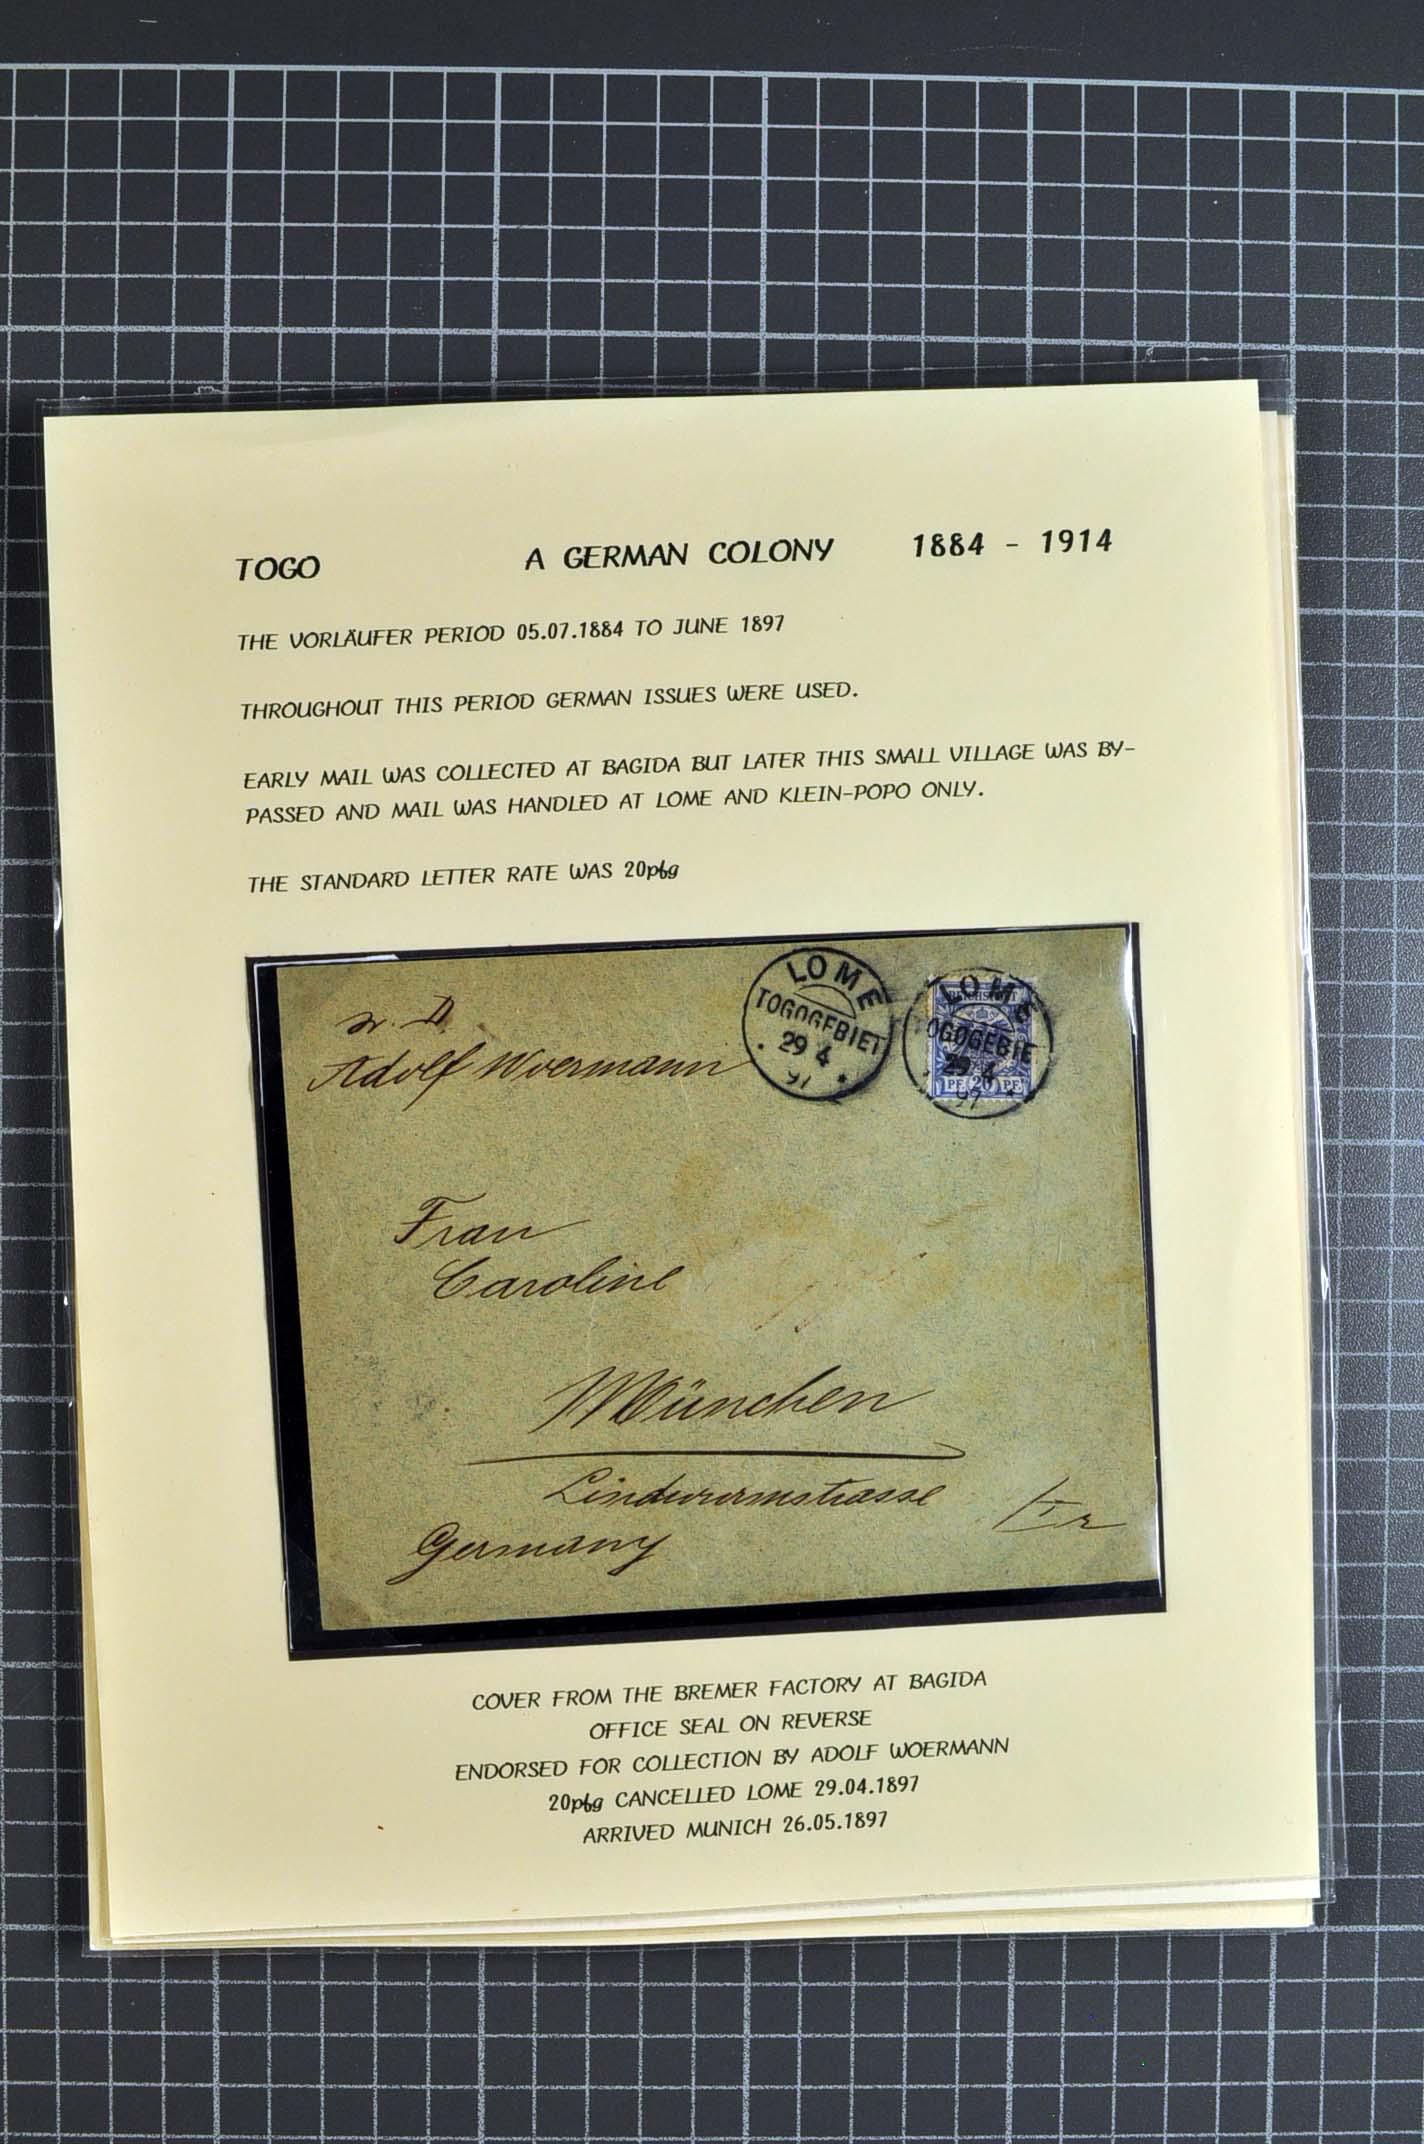 TOGO A GERMAN COLONY 1884 - 1914
THE VORLÄUFER PERIOD 05.07.1884 TO JUNE 1897
THROUGHOUT THIS PERIOD GERMAN ISSUES WERE USED.
EARLY MAIL WAS COLLECTED AT BAGIDA BUT LATER THIS SMALL VILLAGE WAS BY-
PASSED AND MAIL WAS HANDLED AT LOME AND KLEIN-POPO ONLY.
THE STANDARD LETTER RATE WAS 20pfg
Adolf Woermann
LOME
TOGOGEBIET
29 4
97
LOME
OGOGEBIE
29 4
97
PF 20 PF
Frau
Caroline
München
Lindwurmstrasse
Germany
COVER FROM THE BREMER FACTORY AT BAGIDA
OFFICE SEAL ON REVERSE
ENDORSED FOR COLLECTION BY ADOLF WOERMANN
20pfg CANCELLED LOME 29.04.1897
ARRIVED MUNICH 26.05.1897